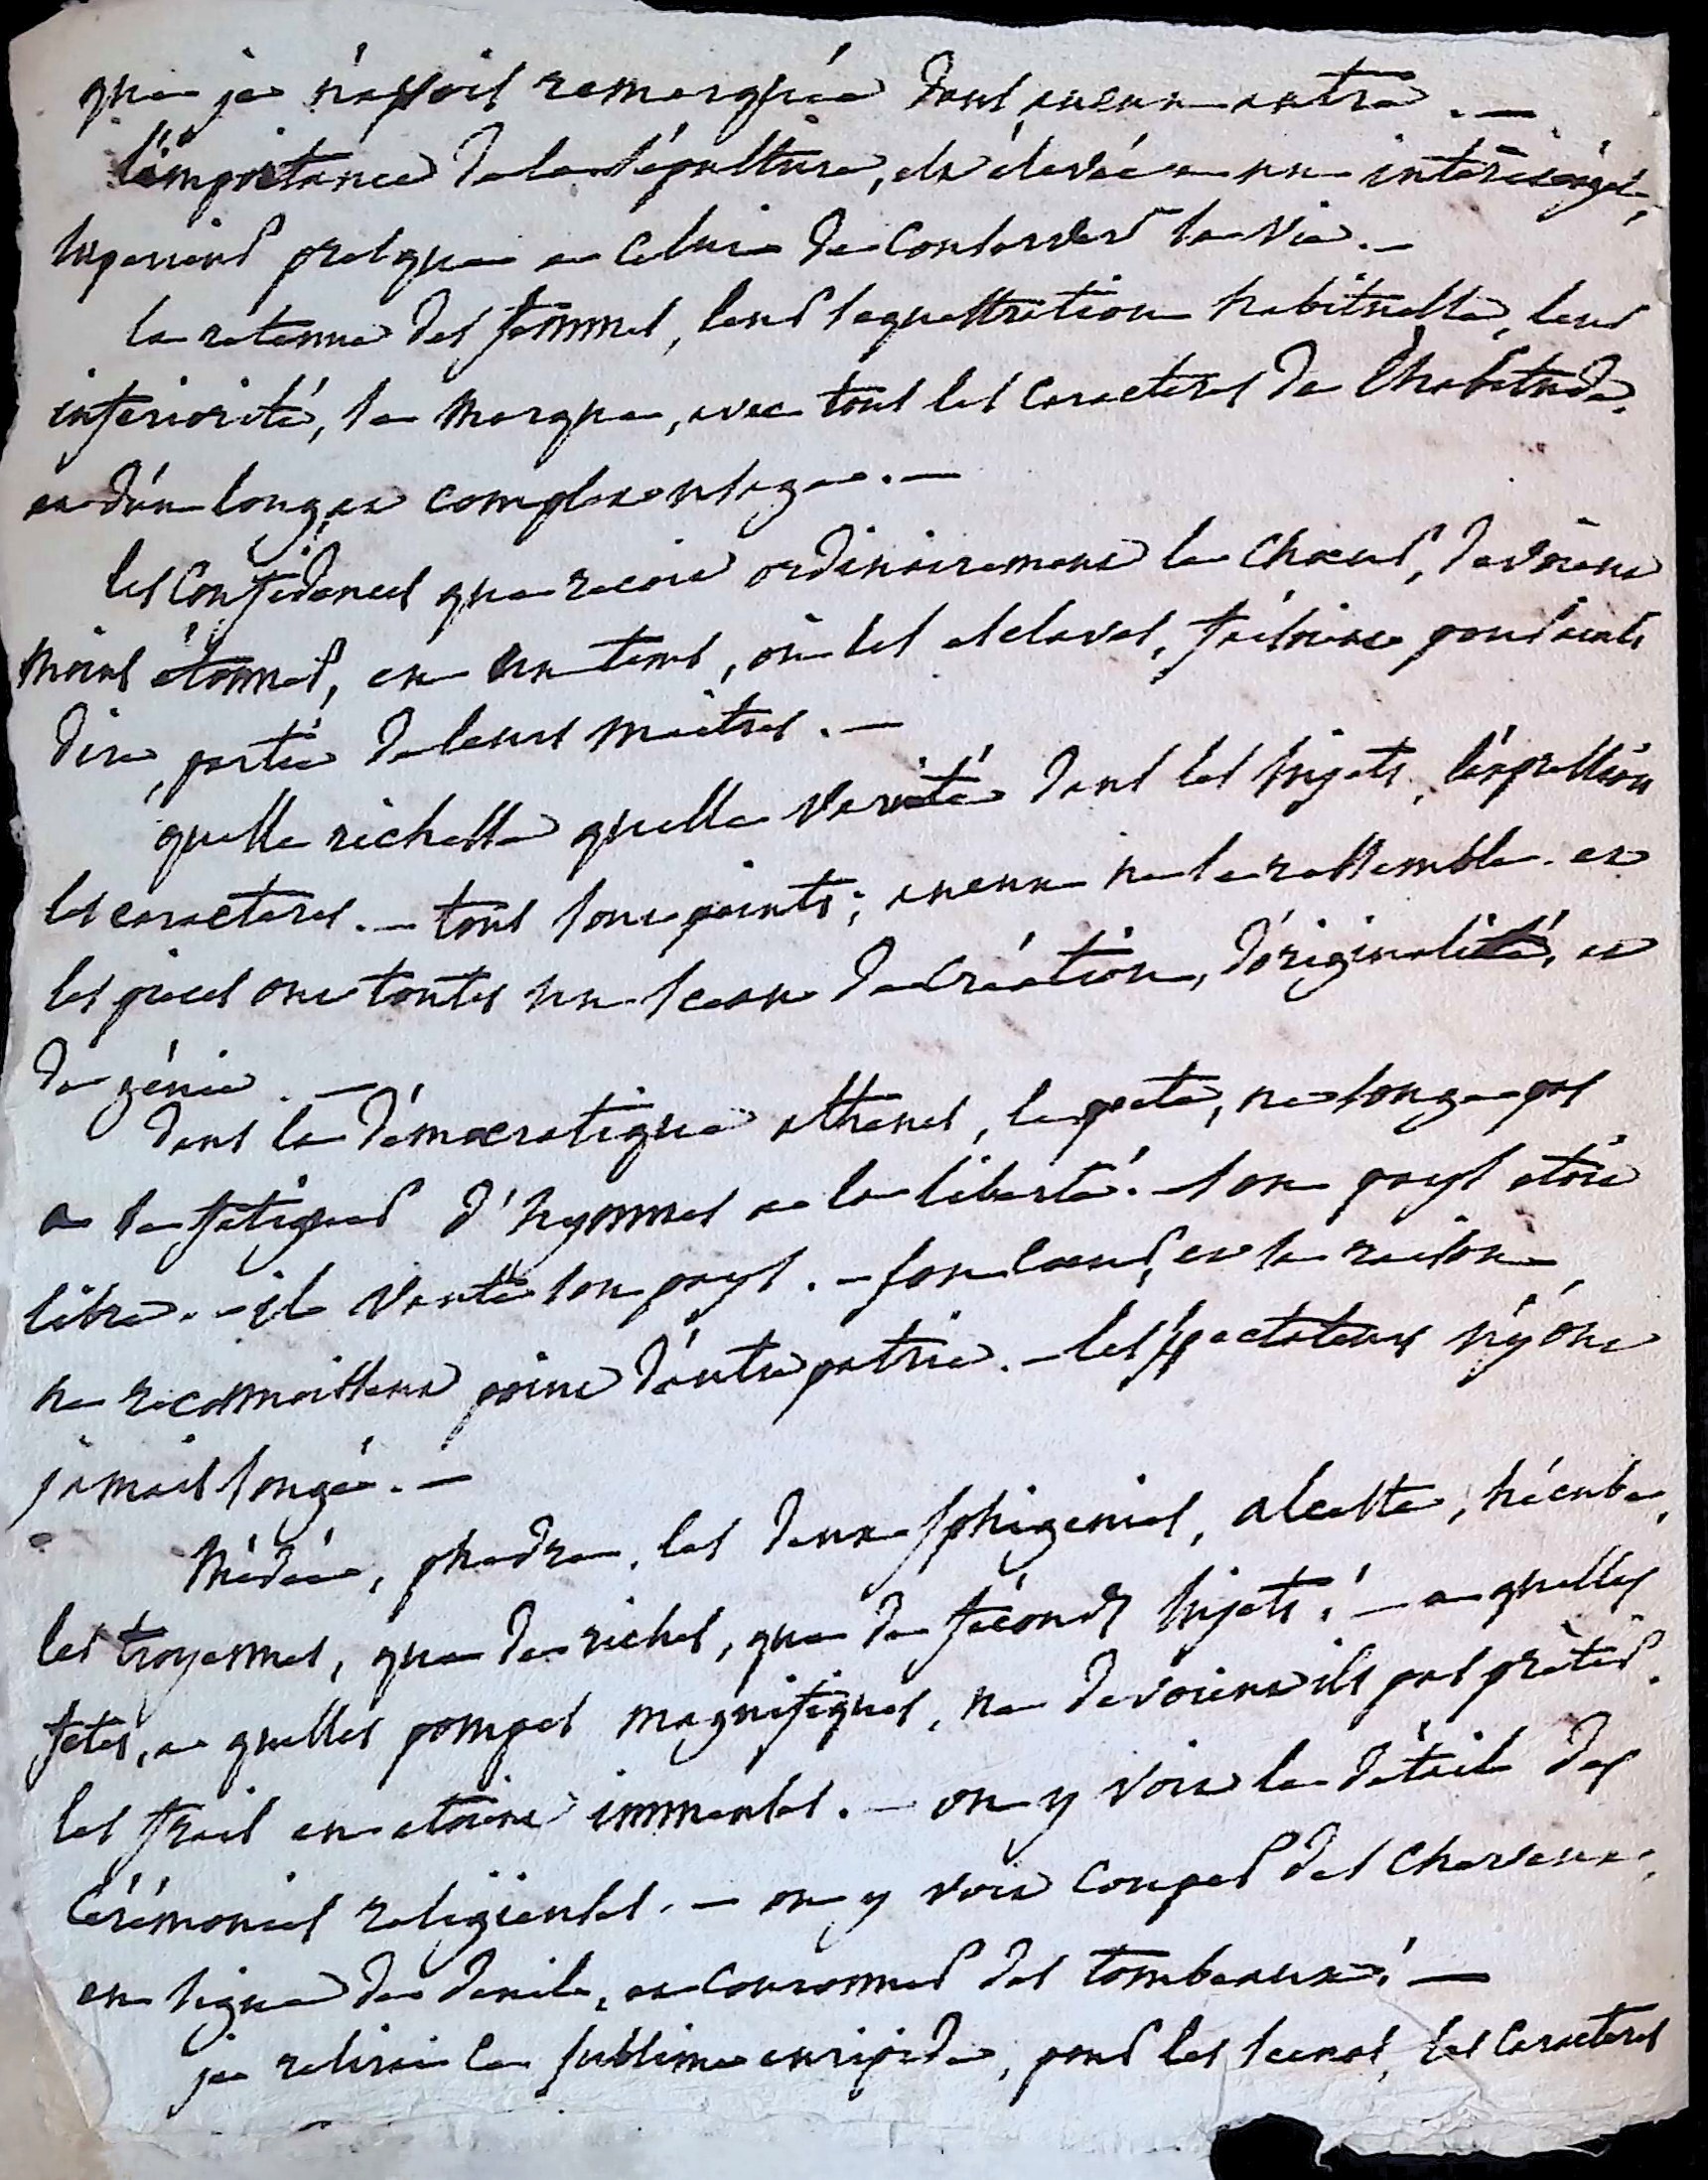 que je n'avois remarquée dans aucun autre. —
l'importance de la sépulture, est élevée a un intérêt,
superieur presque a celui de conserver la vie. —
la retenue des femmes, leur sequestration habituelle, leur
inferiorité, se marque, avec tous les caracteres de l'habitude,
et d'un long, et complet usage. —
les confidences que recoit ordinairement le choeur, devoient
moins étonner, en un tems, où les esclaves, faisoient pour ainsi
dire, partie de leurs maitres. —
quelle richesse quelle varieté dans les sujets, l'expression
les caracteres. — tous sont peints; aucun ne se ressemble. et
les pieces ont toutes un sceau de création, d'originalité, et
de génie. —
dans la démocratique athenes, le poete, ne songe pas
a se fatiguer d'hymnes a la liberté. — son pays etoit
libre. — il vante son pays. — son coeur, et sa raison
ne reconnoissent point d'autre patrie. — les spectateurs n'y ont
jamais songé. —
Médée, phedre, les deux iphigenies, alceste, hécube,
les troyennes, que de riches, que de féconds sujets! — a quelles
fetes, a quelles pompes magnifiques, ne devoient ils pas prêter.
les frais en etoient immenses. — on y voit le détail des
cérémonies religieuses. — on y voit couper des cheveux,
en signe de deuil, et couronner des tombeaux! —
je relirai le sublime euripide, pour les scenes, les caracteres